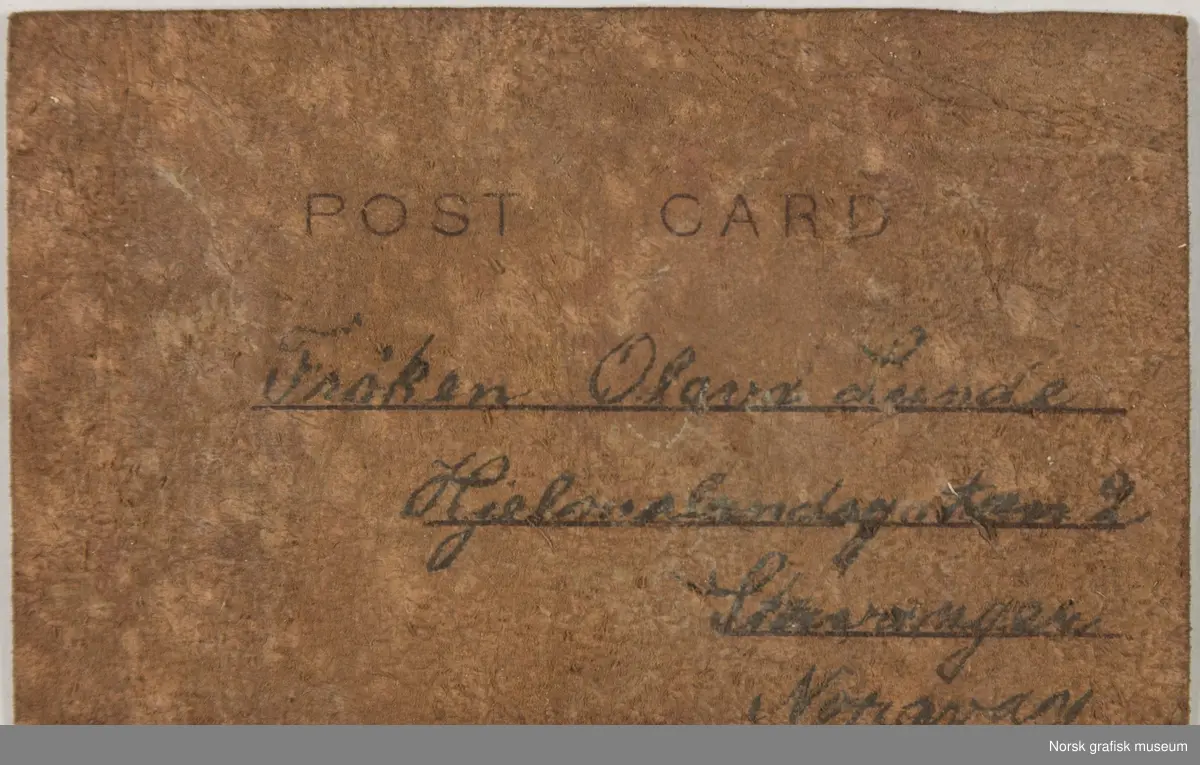 POST CARD
Frøken Olava Lunde
Hjelmelandsgaten 2
Stavanger
Norway
Norsk grafisk museum